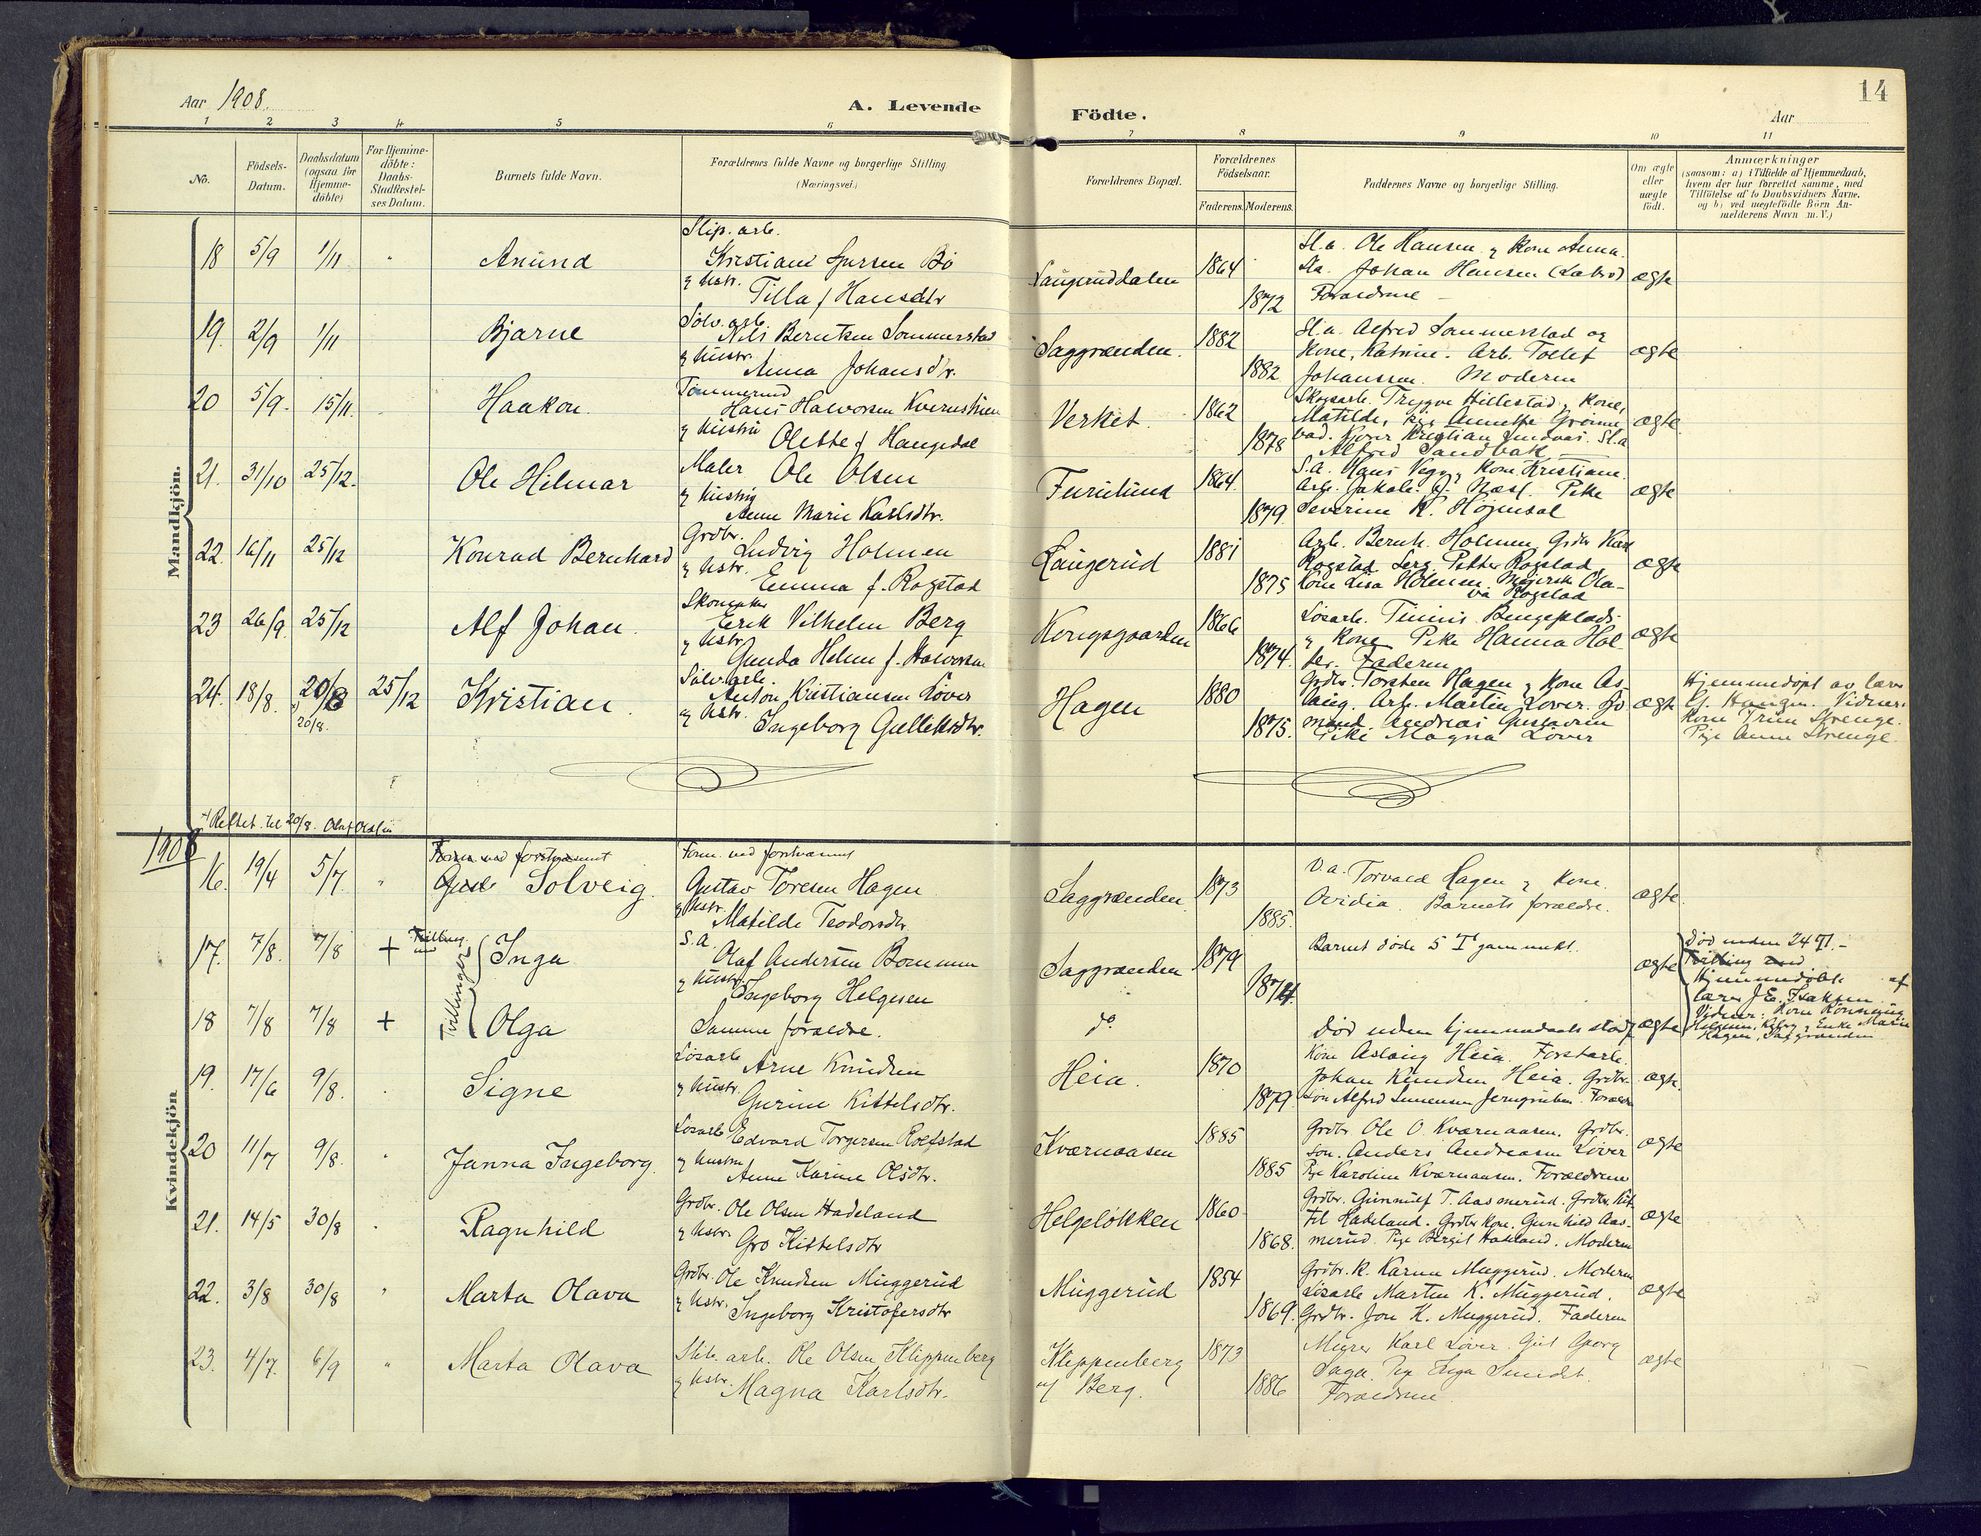 Aar 1908.
A. Levende
Födte.
14
Aar
1 2 3 4 5 6 7 8 9 10 11
No.
Födsels-
Datum.
Daabsdatum
(ogsaa for
Hjemme-
döbte)
For Hjemme-
döbte:
Daabs-
Stadfestel-
ses Datum.
Barnets fulde Navn.
Forældrenes fulde Navne og borgerlige Stilling
(Næringsvei.)
Forældrenes Bopæl.
Forældrenes
Födselsaar.
Faderens. Moderens.
Faddernes Navne og borgerlige Stilling.
Om ægte
eller
uægte
födt.
Anmærkninger
(saasom: a) i Tilfælde af Hjemmedaab,
hvem der har forrettet samme, med
Tilföielse af to Daabsvidners Navne.
og b) ved uegtefödte Börn An-
melderens Navn m. V.)
Mandkjön.
18 5/9 1/11 " Anund
Slip. arb.
Kristian Bö
& hstr.
Tilla f. Hansdtr
Laugeruddalen 1864 1872
Sl.a. Ole Hansen & kone Anna.
Sla. Johan Hansen (Labro)
Forældrene
ægte
19. 2/9 1/11 Bjarne
Sölv. arb.
Nils Berntsen Sommerstad
& hustr.
Anna Johansdtr.
Saggrænden. 1882 1882
Sl.a. Alfred Sommerstad og
Kone, Katrine. Arb. Tollef
Johanssen. Moderen
ægte
20 5/9. 15/11. Haakon.
Hans Halvorsen
& hustru
Olette f. Haugedal
Verket. 1862 1878
Skogsarb. Trygve Hillestad & kone,
Matilde, Pige Annette
Kristian Sl.a
Alfred Sandbak
ægte.
21. 31/10 25/12. Ole Hilmar
Maler Ole Olsen
& hustru
Anne Marie Karlsdtr.
Furulund 1864. 1879.
S.a. Hans & kone Kristiane.
Arb. Jakob Næss. Pike
Severine K.
ægte
22. 16/11 25/12 Konrad Bernhard
Grdbr.
Ludvig Holmen
& hstr.
Emma f. Rogstad
Laugerud 1881 1875
Arb. Bernh. Holmen, Grdbr
Rogstad Serg. Petter Rogstad
kone Lisa Holmen. Ola-
va Rogstad
ægte
23 26/9. 25/12 Alf Johan.
Skomaker
Erik Vilhelm Berg
& hstr.
Gunda Helene f. Halvorsen
Kongsgaarden 1866 1874.
Lösarb.
& kone. Pike Hanna Hol-
ter. Faderen
ægte
24. 18/8. 20/8 25/12 Kristian.
20/8.
Sölv. arb.
Anton Kristiansen Löver
& hstr.
Ingeborg Gulleksdtr.
Hagen 1880 1875.
Grdbr. Torsten Hagen & kone As-
laug. Arb. Martin Löver.
Andreas
Pike Magna Löver
ægte
Hjemmedöpt av lærer
Haugen. Vidner:
Kone Trine Strenge.
Pige Anna Strenge.
Rettet til 20/8.
1908
Kvindekjön
16. 19/4 5/7. "
Solveig.
Gustav Toresen Hagen
& hstr.
Matilde Teodorsdtr
Saggrænden 1873 1885.
V.a. Torvald Hagen & kone.
Ovidia. Barnets forældre.
ægte
17. 7/8. 7/8 +
Tvillinger
Inga
S.a.
Olaf Andersen Bommen
& hustr.
Ingeborg Helgesen
Saggrænden 1879 1874.
Barnet döde 5 T gammelt.
ægte
Död inden 24 T.
Hjemmedöbt af
lærer J. E. Isaksen.
Vidner: Kone
Helgesen, & Enke Marie
Hagen, Saggrænden
18 7/8 7/8 + Olga
Samme forældre.
do
Död uden hjemmedaabs stadf.
ægte
19. 17/6 9/8. Signe
Lösarb.
Arne Knudsen
& hustr.
Gurine Kittelsdtr.
Heia. 1870 1879
Kone Aslaug Heia. Forstarb.
Johan Knudsen Heia. Grdbr.
sön Alfred Jerngruben. Forældr
ægte.
20 11/7 9/8. " Janna Ingeborg.
Lösarb Edvard Torgersen Rolfstad
& hustru
Anne Karine Olsdtr.
Kværnaasen 1885 1885
Grdbr Ole O. Kværnaasen. Grdbr.
sön. Anders Andreasen Löver
Pige Karoline Kværnaasen. Forældrene
ægte
21. 14/5 30/8 " Ragnhild
Grdbr. Ole Olsen Hadeland
& hstr.
Gro Kittelsdtr
Helgelökken 1860 1868.
Grdbr. Gunnulf T. Aasmerud. Grdbr.
Hadeland. Grdbr kone. Gunhild Aas-
merud. Pige Bergit Hadeland. Moderen
ægte
22. 3/8 30/8 " Marta Olava
Grdbr. Ole Knudsen Muggerud
& hstr.
Ingeborg Kristofersdtr
Muggerud 1854 1869.
Grdbr. K. Karine Muggerud. Moderen
Lösarb Martin K. Muggerud.
Grdbr. Jon K. Muggerud. Faderen
ægte
23. 4/7. 6/9 " Marta Olava
Slib. arb. Ole Olsen Klippenberg
& hstr.
Magna Karlsdtr.
Klippenberg
Berg. 1873 1886
Karl Löver. Georg
Saga. Pige Inga
Forældrene
ægte